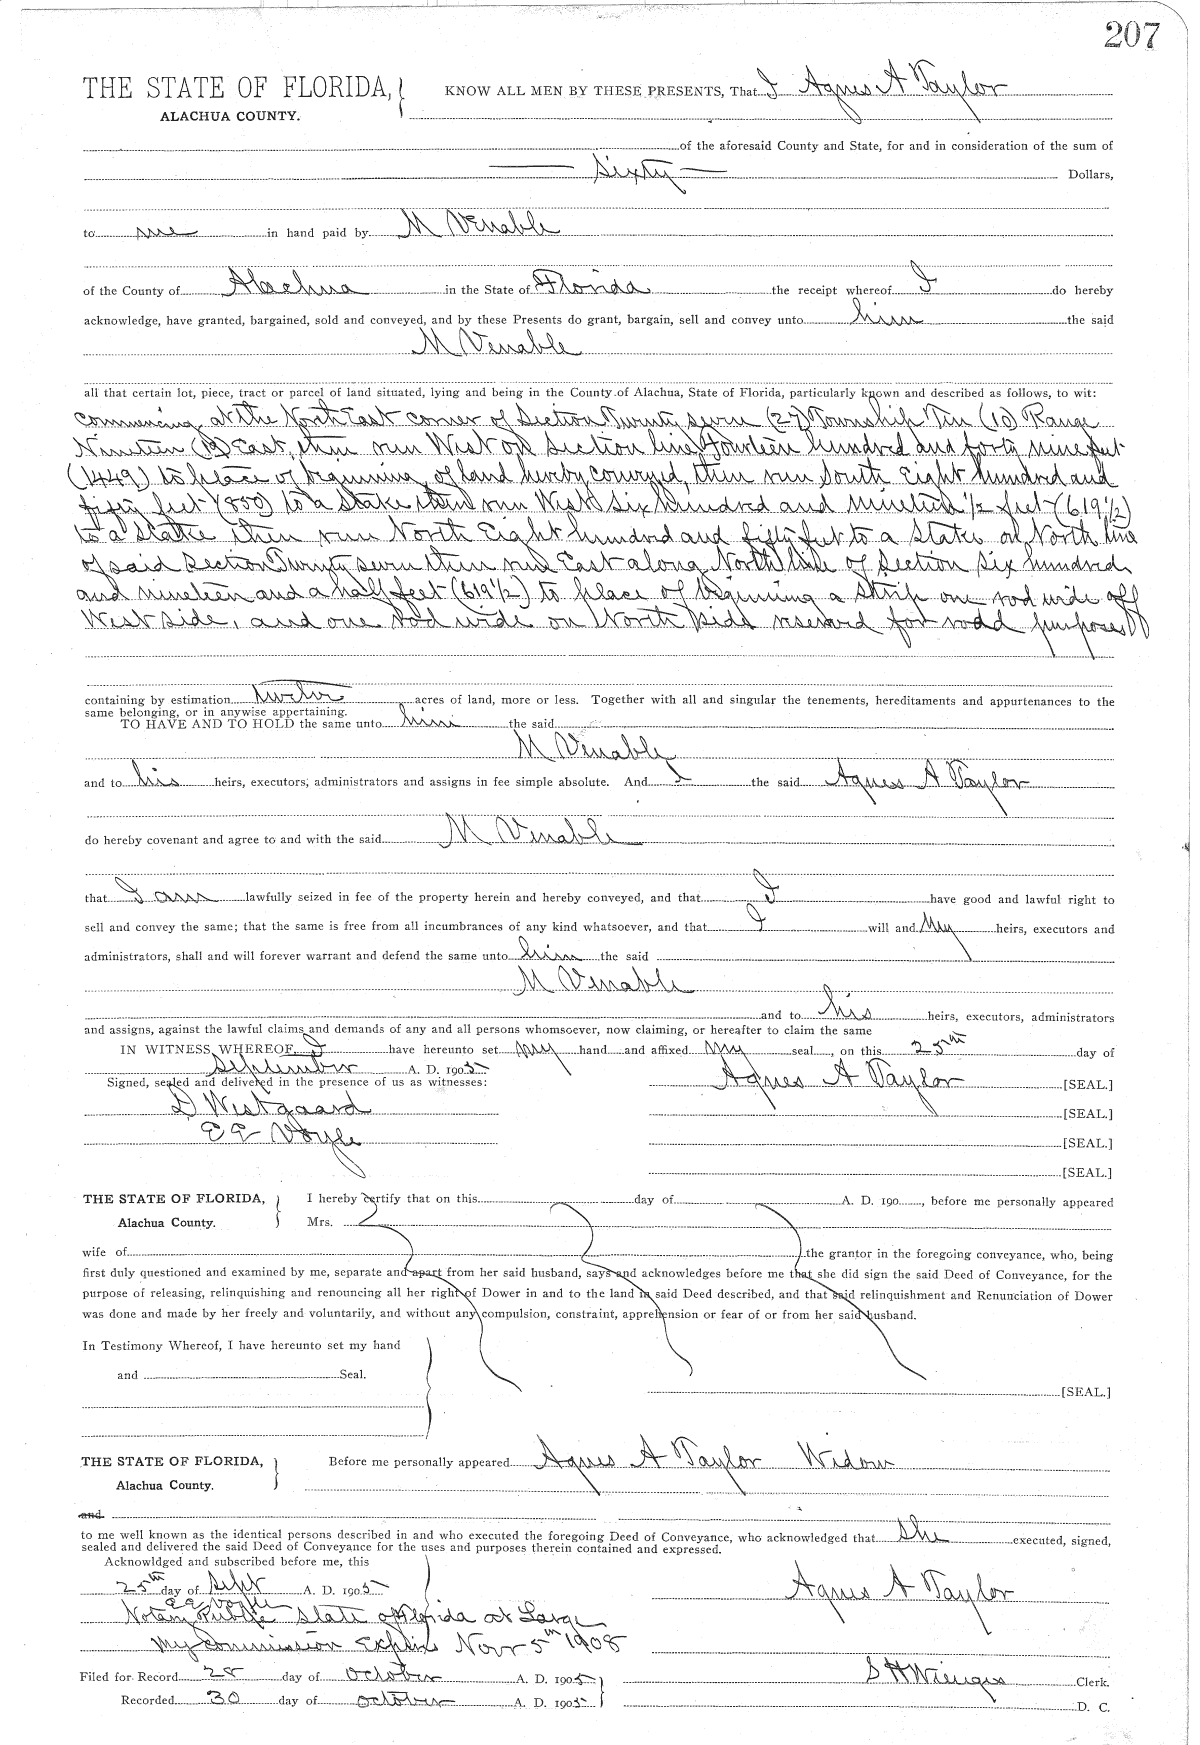 207
THE STATE OF FLORIDA, KNOW ALL MEN BY THESE PRESENTS, That I Agnes A Taylor
ALACHUA COUNTY.
of the aforesaid County and State, for and in consideration of the sum of
Sixty Dollars,
to me in hand paid by M Venable
of the County of Alachua in the State of Florida the receipt whereof I do hereby
acknowledge, have granted, bargained, sold and conveyed, and by these Presents do grant, bargain, sell and convey unto him the said
M Venable
all that certain lot, piece, tract or parcel of land situated, lying and being in the County of Alachua, State of Florida, particularly known and described as follows, to wit:
Commencing at the North East corner of Section Twenty seven (27) Township Ten (10) Range
Nineteen (19) East, then run West on Section line Fourteen hundred and forty nine feet
(1449) to place of beginning of land hereby conveyed, then run South Eight hundred and
fifty feet (850) to a Stake then run West six hundred and nineteen 1/2 feet (619 1/2)
to a Stake then run North Eight hundred and fifty feet to a Stake on North line
of said Section Twenty seven then run East along North line of Section Six hundred
and nineteen and a half feet (619 1/2) to place of beginning a strip one rod wide off
West side, and one rod wide on North side reserved for road purposes
containing by estimation twelve acres of land, more or less. Together with all and singular the tenements, hereditaments and appurtenances to the
same belonging, or in anywise appertaining.
TO HAVE AND TO HOLD the same unto him the said
M Venable
and to his heirs, executors, administrators and assigns in fee simple absolute. And I the said Agnes A Taylor
do hereby covenant and agree to and with the said M Venable
that I am lawfully seized in fee of the property herein and hereby conveyed, and that I have good and lawful right to
sell and convey the same; that the same is free from all incumbrances of any kind whatsoever, and that I will and My heirs, executors and
administrators, shall and will forever warrant and defend the same unto him the said
M Venable
and to his heirs, executors, administrators
and assigns, against the lawful claims and demands of any and all persons whomsoever, now claiming, or hereafter to claim the same
IN WITNESS WHEREOF, I have hereunto set my hand and affixed my seal, on this 25th day of
September A. D. 1905
Signed, sealed and delivered in the presence of us as witnesses: Agnes A Taylor [SEAL.]
D Westgaard [SEAL.]
E E Voyle [SEAL.]
[SEAL.]
THE STATE OF FLORIDA, I hereby certify that on this day of A. D. 190, before me personally appeared
Alachua County. Mrs.
wife of the grantor in the foregoing conveyance, who, being
first duly questioned and examined by me, separate and apart from her said husband, says and acknowledges before me that she did sign the said Deed of Conveyance, for the
purpose of releasing, relinquishing and renouncing all her right of Dower in and to the land in said Deed described, and that said relinquishment and Renunciation of Dower
was done and made by her freely and voluntarily, and without any compulsion, constraint, apprehension or fear of or from her said husband.
In Testimony Whereof, I have hereunto set my hand
and Seal.
[SEAL.]
THE STATE OF FLORIDA, Before me personally appeared Agnes A Taylor Widow
Alachua County.
and
to me well known as the identical persons described in and who executed the foregoing Deed of Conveyance, who acknowledged that she executed, signed,
sealed and delivered the said Deed of Conveyance for the uses and purposes therein contained and expressed.
Acknowldged and subscribed before me, this
25th day of Sept A. D. 1905 Agnes A Taylor
E E Voyle
Notary Public State of Florida at Large
My Commission Expires Novr 5th 1908
Filed for Record 28 day of October A. D. 1905 S H Wienges Clerk.
Recorded 30 day of October A. D. 1905 D. C.